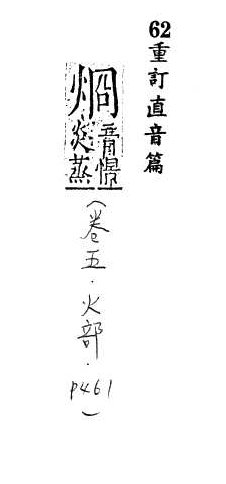 62重訂直音篇
炯
音憬
炎蒸
（卷五．火部．p461）